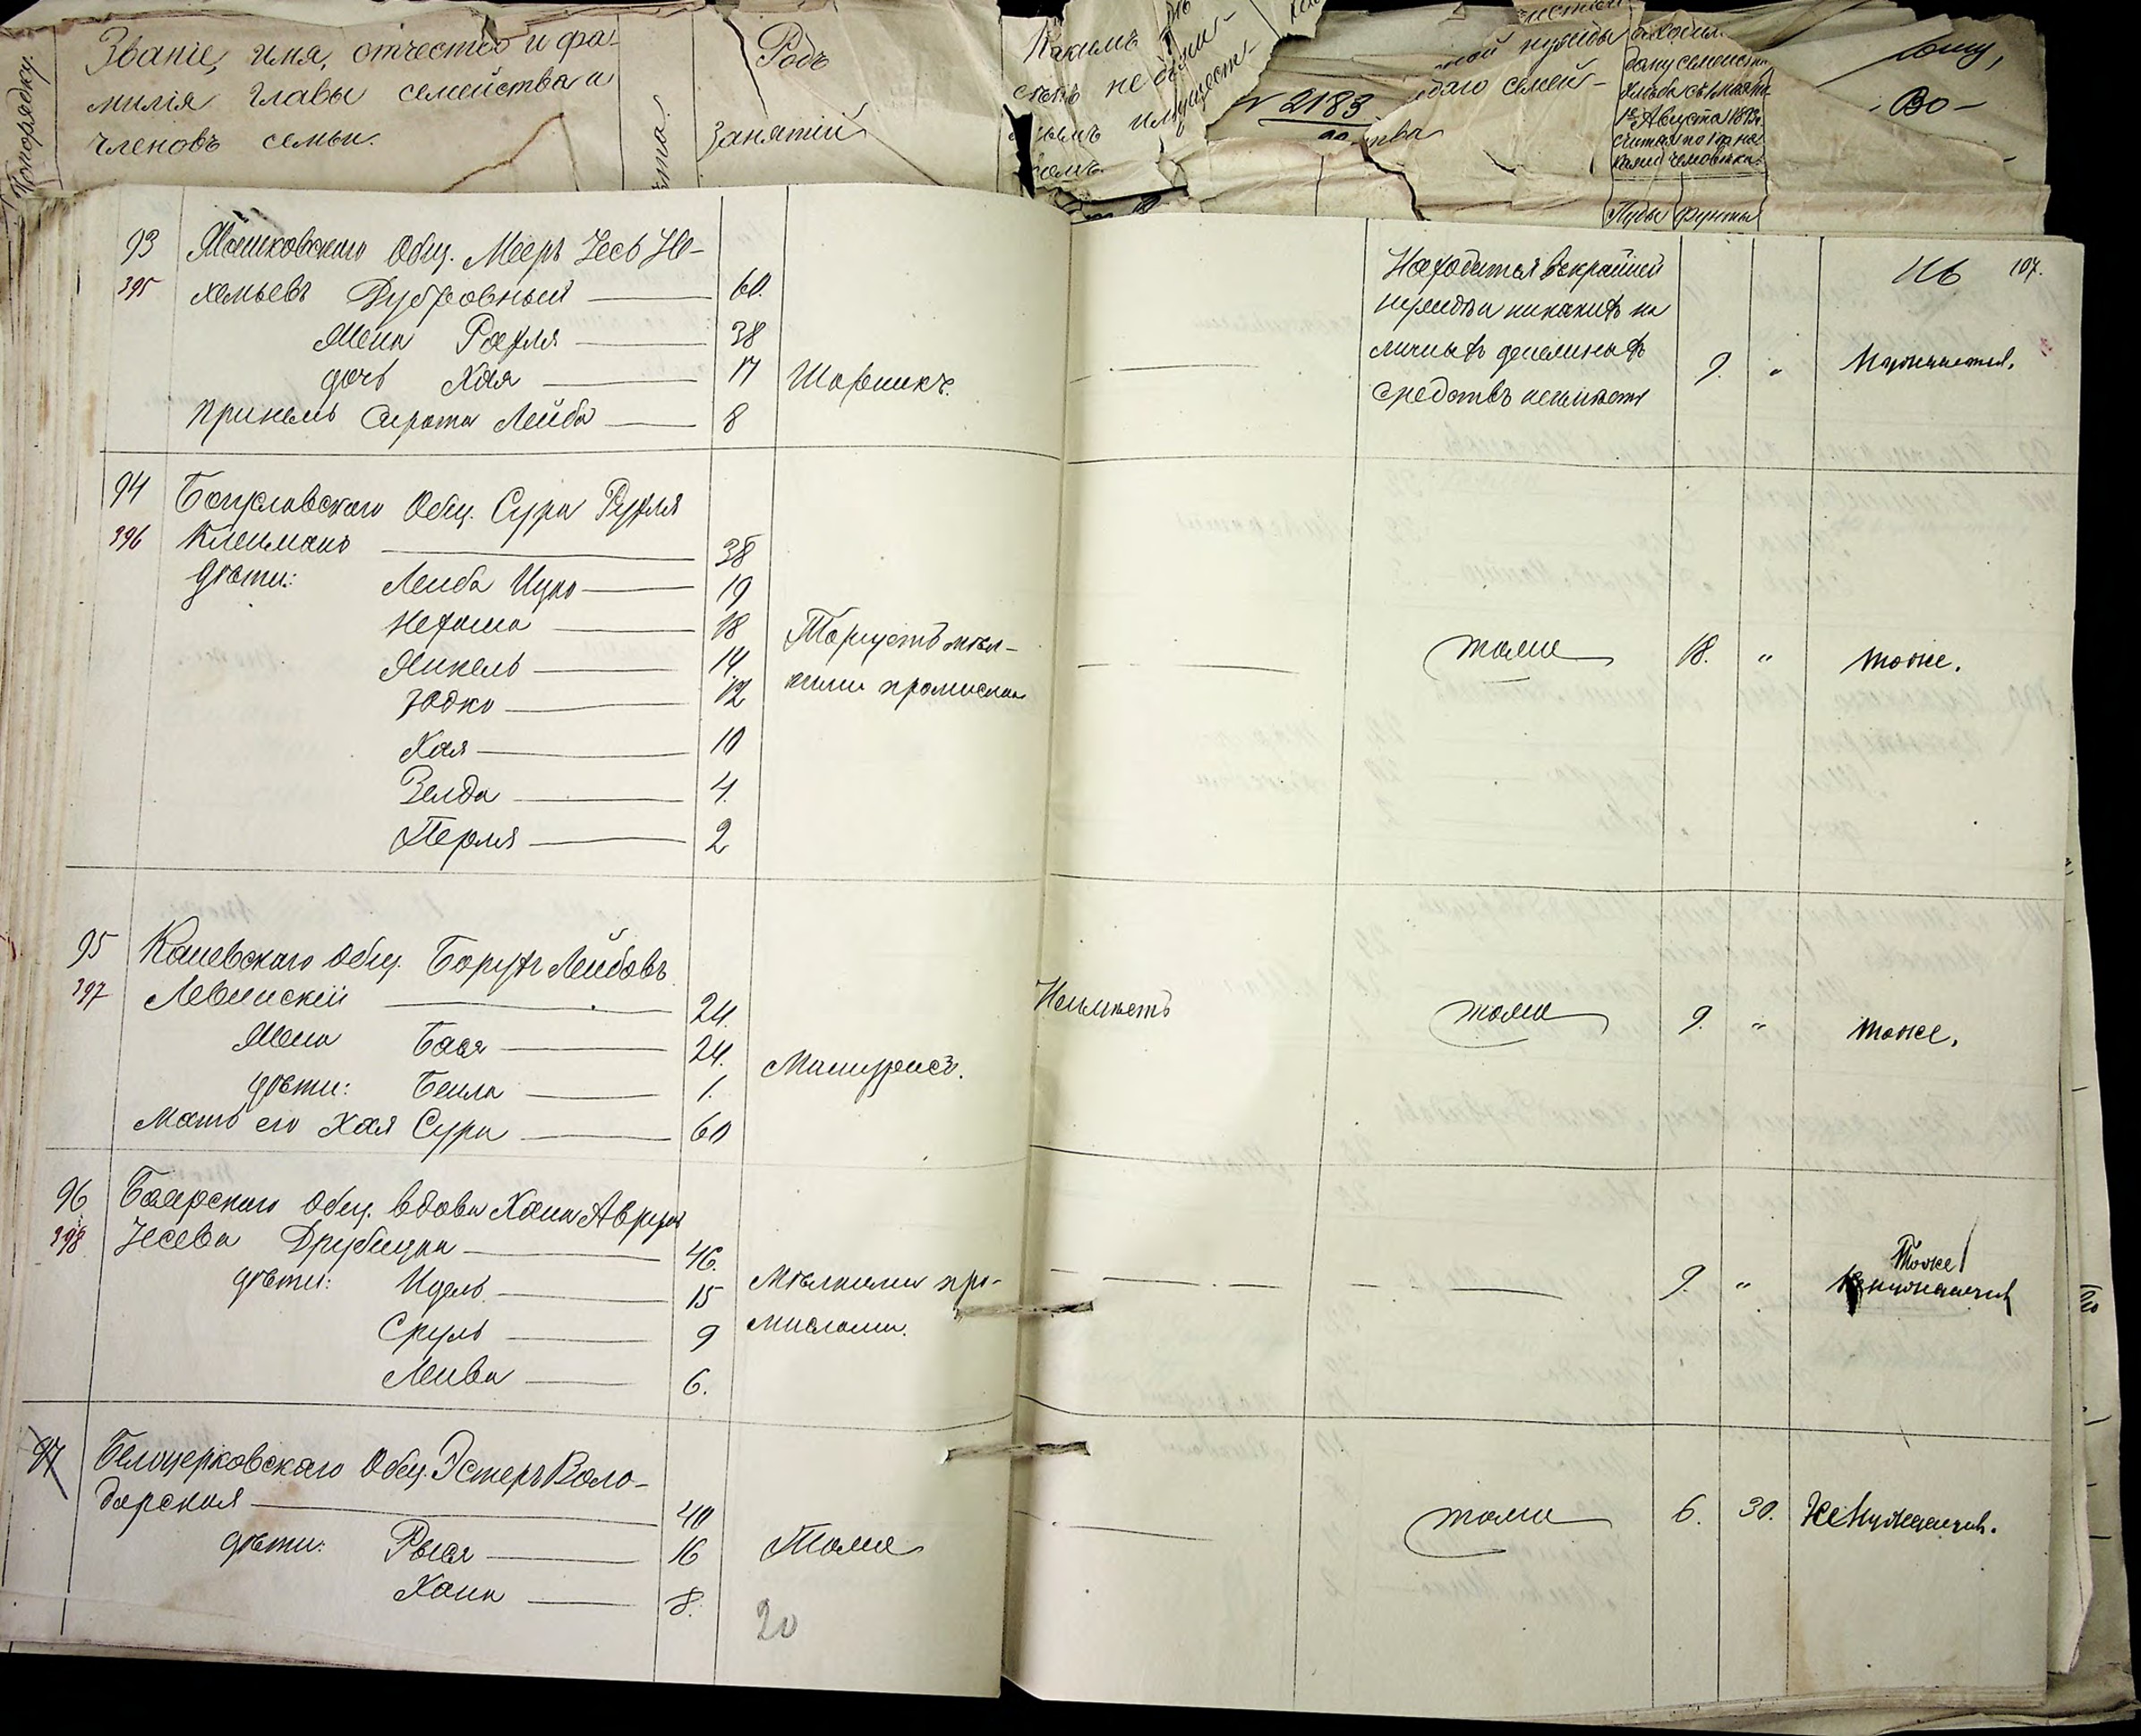 По порядку.
Званіе, имя, отчество и фа-
милія главы семейства и
членовъ семьи.
Родъ
занятій
Какимъ
имущест-
№ 2183
ной нужды
даго семей-
ства
дому семейства
хлѣба съ
1е Августа 189
считая по 1 п на
каждаго человѣка.
Пуды фунты
во-
116 107.
93 Машковскаго Общ. Мееръ Іесь Не-
395 хемьевъ Дубровный 60.
жена Рахля 38
дочь Хая 17
принемъ сирота Лейба 8
Шорникъ.
Находится въ крайней
нуждѣ и никакихъ на
личныхъ денежныхъ
средствъ неимѣетъ
9. "
Нуждается.
94 Богуславскаго Общ. Сура Рухля
396 Клейманъ 38
дѣти: Лейба Ицко 19
Нехама 18
Янкель 14
Іодко 12
Хая 10
Зелда 4.
Перля 2
Торгуетъ мѣл-
кими промислами
тоже 18. " тоже.
95 Каневскаго Общ. Борухъ Лейбовъ
397 Левинскій 24.
жена Бася 24.
дѣти: Бейла 1.
Мать его Хая Сура 60
Машуресъ.
Неимѣетъ
тоже 9. " тоже.
96 Баярскаго Общ. вдова Хана Аврум
398 Іосева Друбицка 46.
дѣти: Идель 15
Сруль 9
Лейва 6.
Мѣлкими про-
мислами.
9. "
Тоже
нуждается
97 Бѣлоцерковскаго Общ. Эстеръ Воло-
дарская 40
дѣти: Рыся 16
Хана 8.
Тоже
тоже 6. 30. Не нуждается.
20